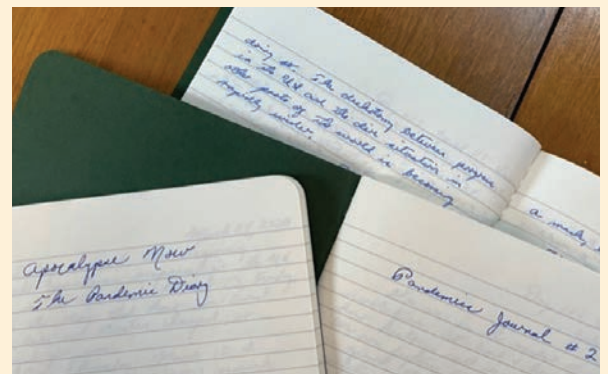 doing it. The dichotomy between progress
in the US and the dire situation in
other parts of the world is becoming
rapidly wider.
a
Apocalypse Now
The Pandemic Diary
Pandemic Journal # 2